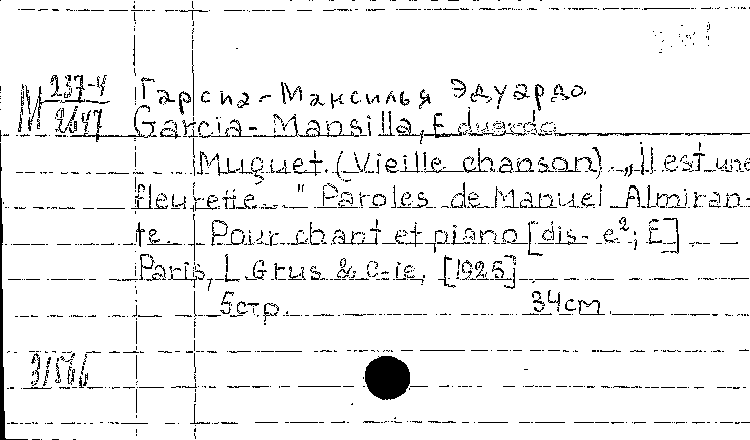 М 237-4
2647
Гарсиа-Мансилья Эдуардо.
Garcia-Mansilla, Eduardo
Muguet. (Vieille chanson). „Il est une
fleurette..." Paroles de Manuel Almiran-
te. Pour chant et piano [dis-e²; E]
Paris, L. Grus & C-ie, [1925]
5стр. 34cm.